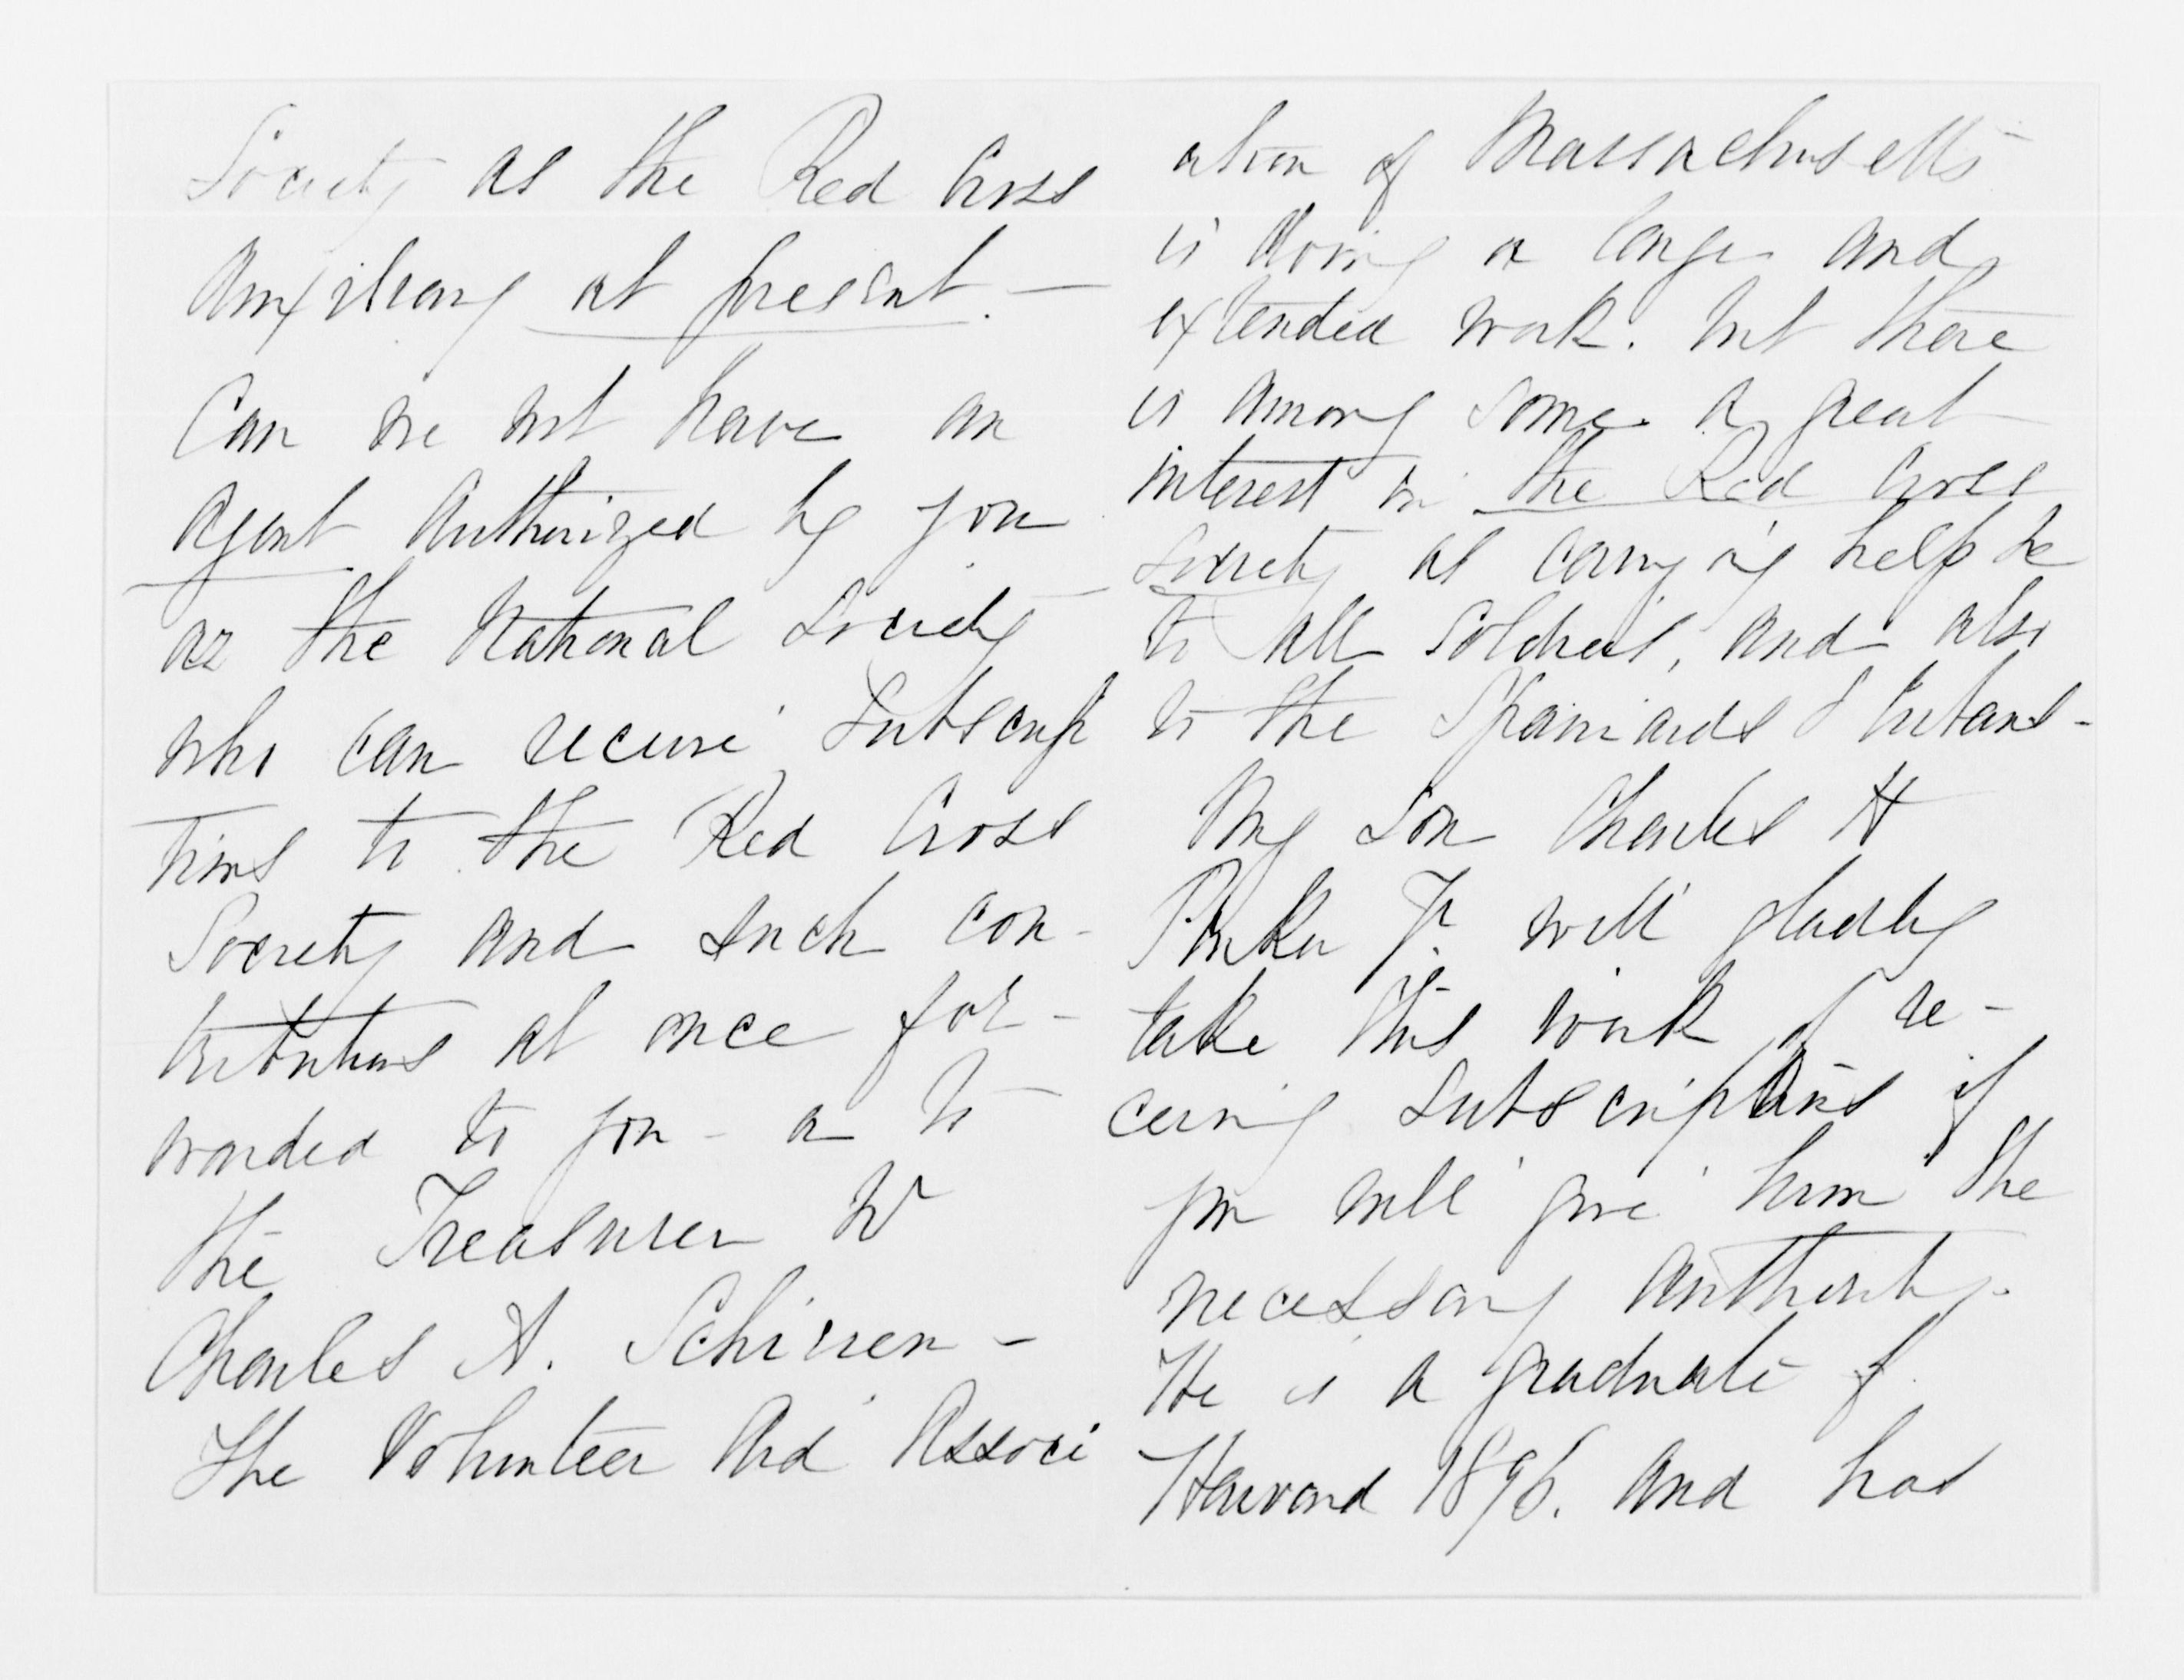 Society as the Red Cross
Auxiliary at present. —
Can we not have an
agent authorized by you
as the National Society
who can receive Subscrip
tions to the Red Cross
Society and such con-
tributions at once for-
warded to you - or to
the Treasurer Mr
Charles A. Schieren -
The Volunteer Aid Associ
ation of Massachusetts
is doing a large and
extended work. but there
is among some a great
interest in the Red Cross
Society as carrying help
to all soldiers, and also
to the Spaniards & Cubans -
My Son Charles H
Parker Jr. will gladly
take this work of re-
ceiving Subscriptions if
you will give him the
necessary authority.
He is a graduate of
Harvard 1896. and has